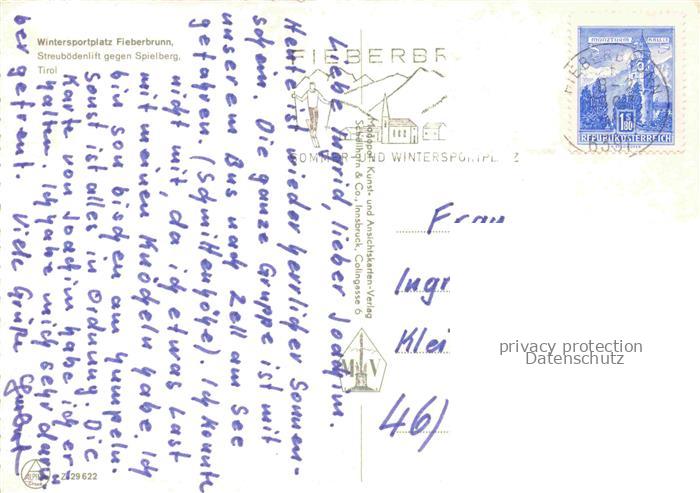 Wintersportplatz Fieberbrunn,
Streubödenlift gegen Spielberg,
Tirol
FIEBERBR
SOMMER- UND WINTERSPORTPLATZ
MÜNZTURM HALL I.T.
S 1.80
REPUBLIK ÖSTERREICH
FIEBERBRUNN
6391
Liebe Ingrid, lieber Joachim.
Heute ist wieder herrlicher Sonnen-
schein. Die ganze Gruppe ist mit
unserem Bus nach Zell am See
gefahren (Schmittenhöhe). Ich konnte
nicht mit, da ich etwas Last
mit meinen Knöcheln habe. Ich
bin so'n bischen am humpeln.
Sonst ist alles in Ordnung. Die
Karte von Joachim habe ich er-
halten. Ich habe mich sehr darü-
ber gefreut. Viele Grüße
Alpodopon Kunst- und Ansichtskarten-Verlag
Schöllhorn & Co., Innsbruck, Colingasse 6
Frau
Ingr
Klei
46)
privacy protection
Datenschutz
M V
ALPIN
Druck
Z 29 622